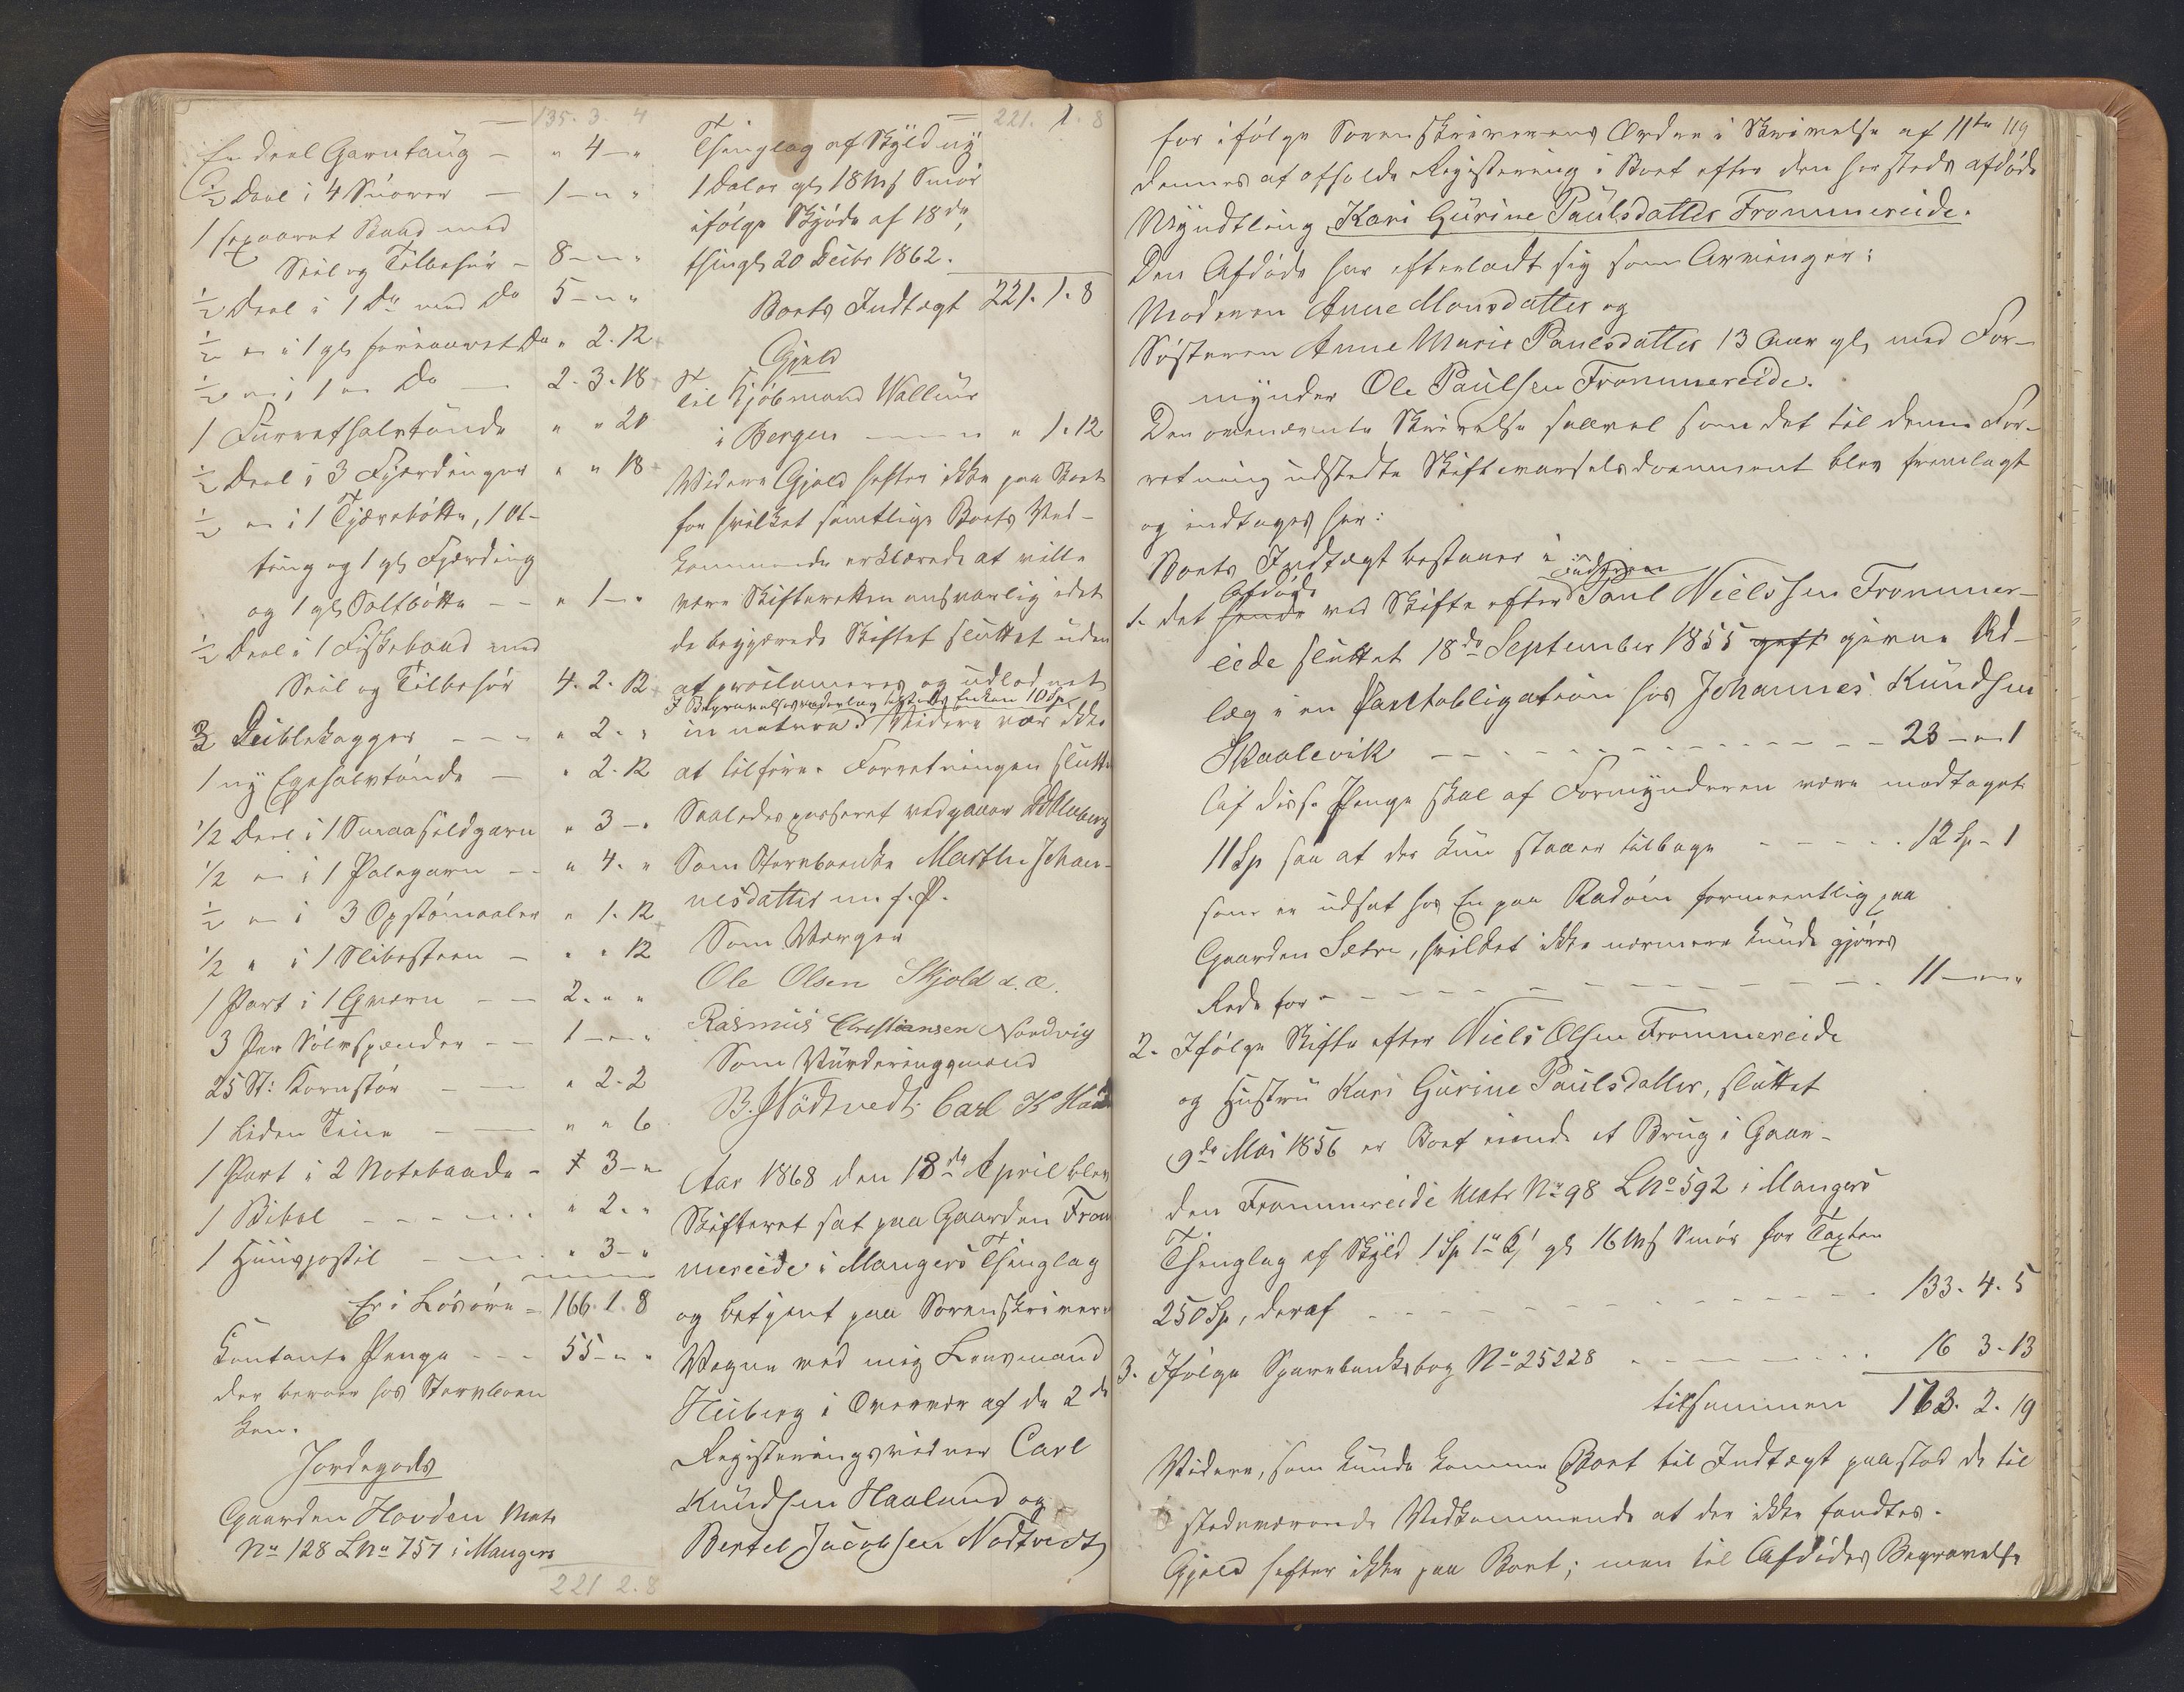 135. 3. 4
En deel Garntaug — " 4 — "
½ Deel i 4 Snører — 1 — " "
1 sexaaret Baad med
Seil og Tilbehør — 8 — " "
½ Deel i 1 Do med Do 5 — " "
½ " i 1 gl. fireaaret Do " 2. 12
½ " i 1 " Do — 2. 3. 18
1 Furuehalvtønde " " 20
½ Deel i 3 Fjerdinger " " 18
½ " i 1 Tjærebøtte, 1 Ot-
ting og 1 gl. Fjerding
og 1 gl. Saltbøtte — " 1 — "
½ Deel i 1 Fiskebaad med
Seil og Tilbehør 4. 2. 12
Deiblekagger — " 2. "
1 ny Egehalvtønde — " 2. 12
1/2 Deel i 1 Smaasildgarn " 3 — "
1/2 " i 1 Palegarn — " 4. "
½ " i 3 Opstømaaler " 1. 12
1/2 " i 1 Slibesteen — " " 12
1 Part i 1 Qværn — 2. " "
3 Par Sølvspænder — 1 — " "
25 St: Kornstør — " 2. 2
1 liden Teine — " " 6
1 Part i 2 Notebaade — 3 — "
1 Bibel — " 2. "
1 Huuspostil — " 3 — "
Er i Løsøre = 166. 1. 8
Contante Penge — 55 — " "
der beroer hos Stervboen
ken.
Jordegods
Gaarden Hovden Matr
No 128 LNo 757 i Mangers
221 2. 8
221. 1. 8
Thinglag af Skyld ny
1 Daler gl. 18 Mk Smør
ifølge Skjøde af 18de,
thingl. 20 Decbr 1862.
Boets Indtægt 221. 1. 8
Gjeld
til Kjøbmand Wallem
i Bergen — " 1. 12
Videre Gjeld hefter ikke paa Boet
for hvilket samtlige Boets Ved-
kommende erklærede at ville
være Skifteretten ansvarlig idet
de begjærede Skiftet sluttet uden
at proclameres og udlodnet
I Begravelsesvederlag tilstodes Enken 10 Sp.
in natura. Videre var ikke
at tilføre. Forretningen sluttet
Saaledes passeret vedgaaer
Som Stervboenke Marthe Johan-
nesdatter m. f. P.
Som Værger
Ole Olsen Skjold d. æ.
Rasmus Christiansen Nordvig
Som Vurderingsmænd
B. J Nødtvedt. Carl K Haa
Aar 1868 den 18de April blev
Skifteret sat paa Gaarden From
mereide i Mangers Thinglag
og betjent paa Sorenskriver
Vegne ved mig Lensmand
Heiberg i Overvær af de 2de
Registeringsvidner Carl
Knudsen Haaland og
Bertel Jacobsen Nødtvedt
119
for ifølge Sorenskriverens Ordre i Skrivelse af 11te
dennes at afholde Registering i Boet efter den hersteds afdøde
Myndtling Kari Gurine Paulsdatter Frommereide.
Den Afdøde har efterladt sig som Arvinger:
Moderen Anne Monsdatter og
Søsteren Anne Marie Paulsdatter 13 Aar gl. med For-
mynder Ole Paulsen Frommereide.
Den ovennævnte Skrivelse saavel som det til denne For-
retning udstedte Skiftevarselsdocument blev fremlagt
og indtages her:
Boets Indtægt bestaaer i
1. det Afdøde ved Skifte efter Paul Nielssen Frommer-
eide sluttet 18de September 1855 givne Ud-
læg i en Panteobligation hos Johannes Knudsen
Skaalevik — 23 — " 1
Af disse Penge skal af Formynderen være modtaget
11 Sp saa at der kun staaer tilbage — 12 Sp — 1
som er udsat hos En paa Radøen formeentlig paa
Gaarden Sætre, hvilket ikke nærmere kunde gjøres
Rede for — 11 — " "
2. Ifølge Skifte efter Niels Olsen Frommereide
og Hustru Kari Gurine Paulsdatter, sluttet
9de Mai 1856 er Boet eiende et Brug i Gaar-
den Frommereide Matr No 98 LNo 592 i Mangers
Thinglag af Skyld 1 Sp 1 gl. 16 Mk Smør for Taxten
250 Sp, deraf — 133. 4. 5
3. Ifølge Sparebanksbog No 25228 — 16 3. 13
tilsammen 163. 2. 19
Videre, som kunde komme Boet til Indtægt paastod de til
stedeværende Vedkommende at der ikke fandtes.
Gjeld hefter ikke paa Boet; men til Afdødes Begravelse